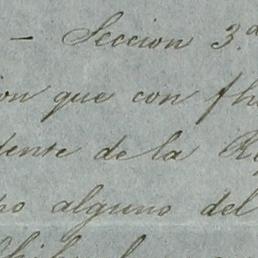 — Seccion 3.ª
ion que con fh
dente de la Re
po alguno del